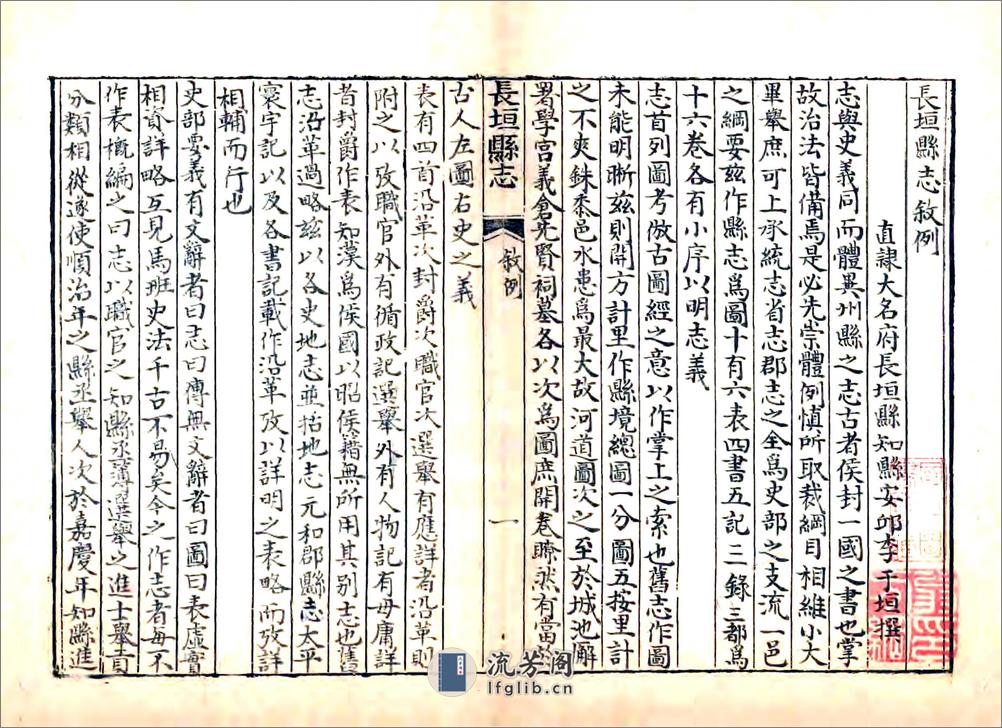 長垣縣志敘例
直隸大名府長垣縣知縣安邱李于垣撰
志與史義同而體異州縣之志古者侯封一國之書也掌
故治法皆備焉是必先崇體例慎所取裁綱目相維小大
畢舉庶可上承統志省志郡志之全爲史部之支流一邑
之綱要茲作縣志爲圖十有六表四書五記二錄三都爲
十六卷各有小序以明志義
志首列圖考倣古圖經之意以作掌上之索也舊志作圖
未能明晰茲則開方計里作縣境總圖一分圖五按里計
之不爽銖黍邑水患爲最大故河道圖次之至於城池廨
署學宮義倉先賢祠墓各以次爲圖庶開卷瞭然有當於
長垣縣志 敘例 一
古人左圖右史之義
表有四首沿革次封爵次職官次選舉有應詳者沿革則
附之以攷職官外有循政記選舉外有人物記有毋庸詳
者封爵作表知漢爲侯國以昭侯籍無所用其別志也舊
志沿革過略茲以各史地志並括地志元和郡縣志太平
寰宇記以及各書記載作沿革攷以詳明之表略而攷詳
相輔而行也
史部要義有文辭者曰志曰傳無文辭者曰圖曰表虛實
相資詳略互見馬班史法千古不易矣今之作志者每不
作表概編之曰志以職官之知縣丞簿選舉之進士舉貢
分類相從遂使順治年之縣丞舉人次於嘉慶年知縣進
流芳阁
lfglib.cn